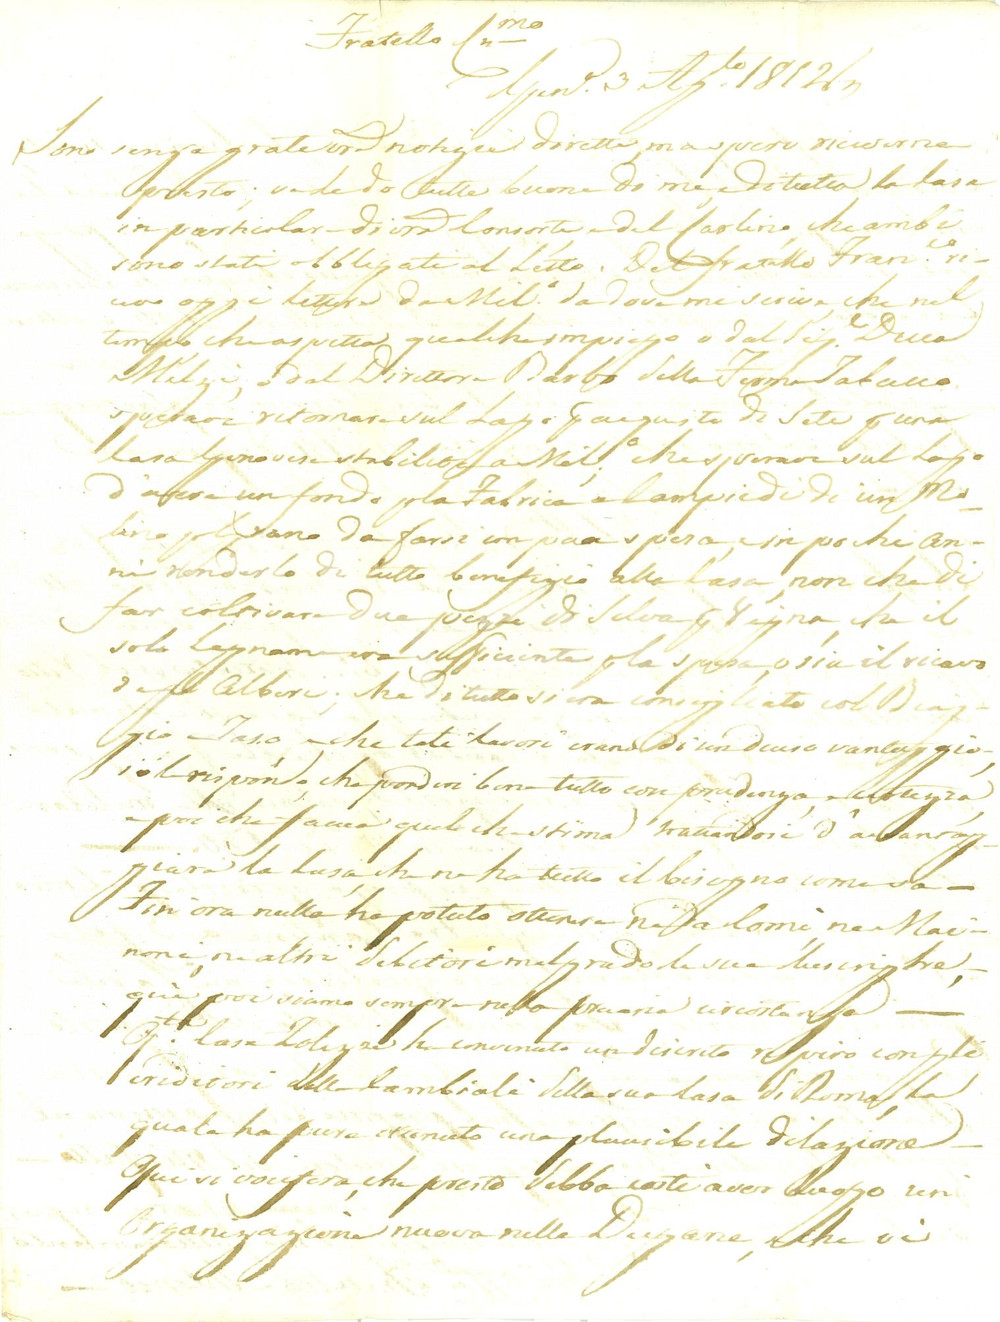 Fratello Cmo
Gen.a 3 Ag.to 1812
Sono senza grate vre notizie dirette, ma spero riceverne
presto; vedendo tutte buone di me, e di tutta la Casa
in particolare di vra Consorte e del Carlino, che ambi
sono stati obbligati al Letto. Del fratello Fran.co ri-
cevo oggi lettera da Mil.o da dove mi scrive, che nel
tempo che aspetta qualche impiego o dal Sig.r Duca
Melzi, o dal Direttore Barbò della Ferma Tabacco
sperava ritornare sul Lago p acquisti di Sete p una
Casa Genovese stabilita a Mil.o, che sperava sul Lago
d'avere un fondo p la Fabrica a Campiedi di un Mo-
lino p il Grano da farsi con poca spesa, e in pochi An-
ni renderlo di tutto benefizio alla Casa, non che di
far coltivare due pezzi di Selva p Vigna, che il
solo Legname era sufficiente p la spesa, o sia il ricavo
degli Alberi; che di tutto si era consigliato col Biag-
gio e Taso, e che tali lavori erano di un deciso vantaggio,
io li rispondo, che ponderi bene tutto con prudenza,
e poi che faccia quel che stima trattandosi d'avantag-
giare la Casa che ne ha tutto il bisogno come sa —
Fin'ora nulla ha potuto ottenere nè da Comi, ne Mai-
noni, ne altri debitori malgrado le sue
quì poi siamo sempre nella precaria circostanza —
Q.ta Casa ha convenuto un discreto respiro con gli
creditori delle Cambiali della sua Casa di Roma, la
quale ha pure ottenuto una plausibile dilazione —
Qui si vocifera, che presto debba costì aver luogo un'
Organizzazione nuova nelle Dogane, e che vi